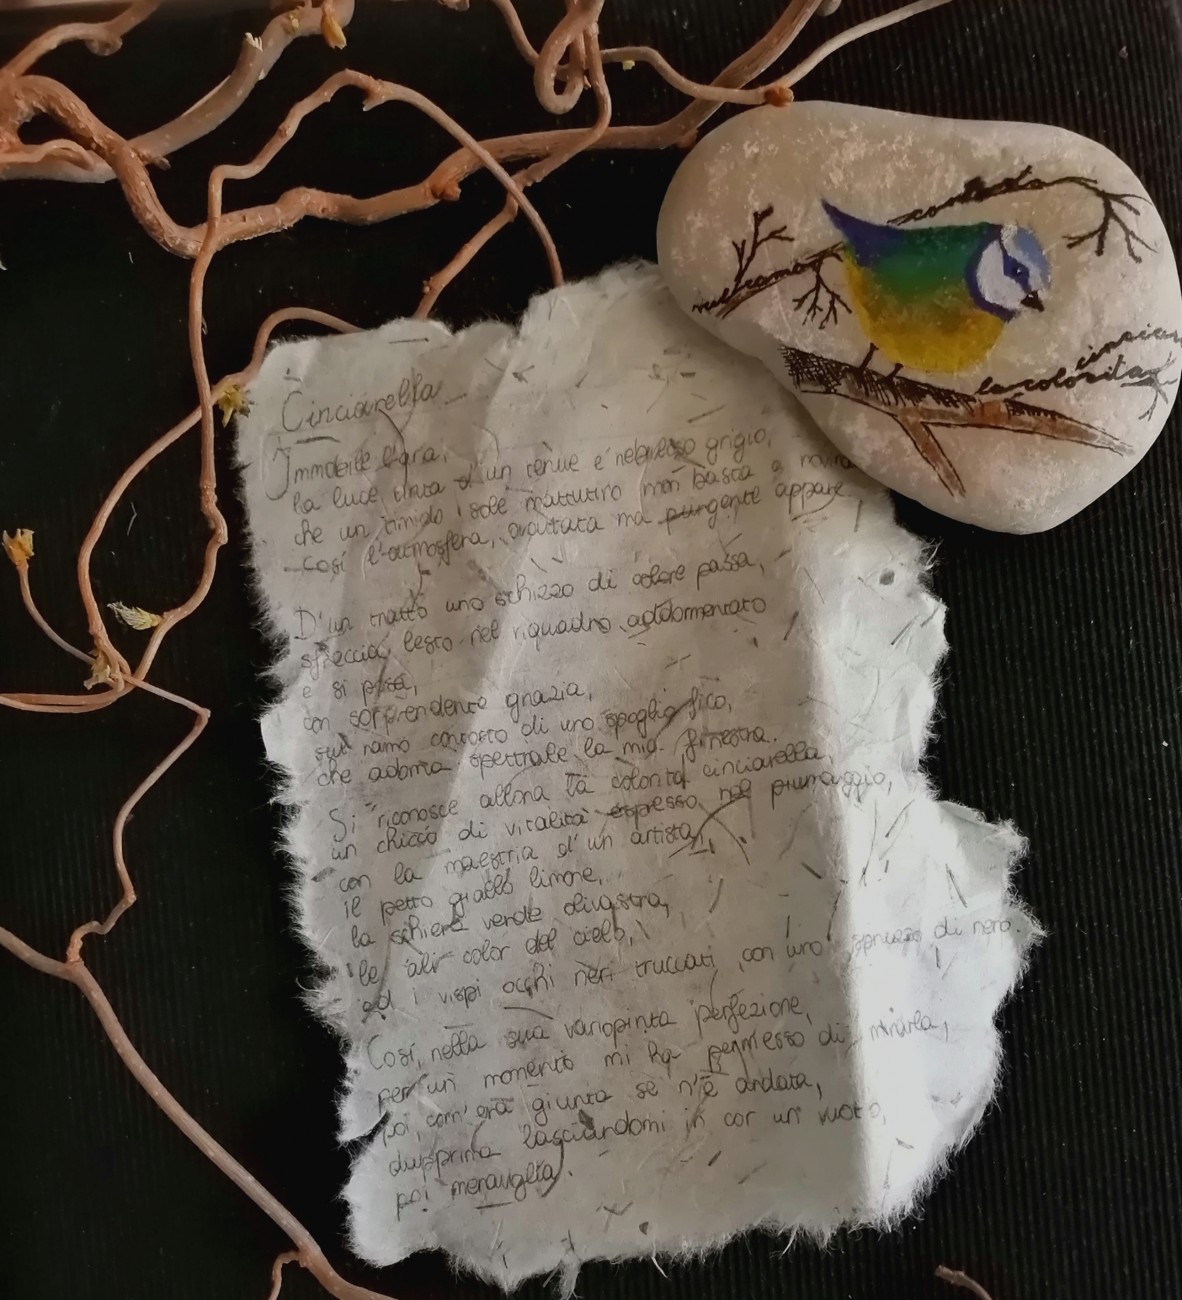 Cinciarella
Immobile l'aria,
la luce tinta d'un tenue e nebuloso grigio,
che un timido sole mattutino non basta a
così l'atmosfera, ovattata ma pungente appare.
D'un tratto uno schizzo di colore passa,
sfreccia lesto nel riquadro addormentato
e si posa,
con sorprendente grazia,
sul ramo contorto di uno spoglio fico,
che adorna spettrale la mia finestra.
Si riconosce allora la colorita cinciarella,
un chicco di vitalità espresso nel piumaggio,
con la maestria d'un artista,
il petto giallo limone,
la schiena verde olivastra,
le ali color del cielo,
ed i vispi occhi neri truccati con uno spruzzo di nero.
Così, nella sua variopinta perfezione,
per un momento mi ha permesso di mirarla,
poi, com'era giunta se n'è andata,
dapprima lasciandomi in cor un vuoto,
poi meraviglia.
sul ramo contorto
la colorita cinciar